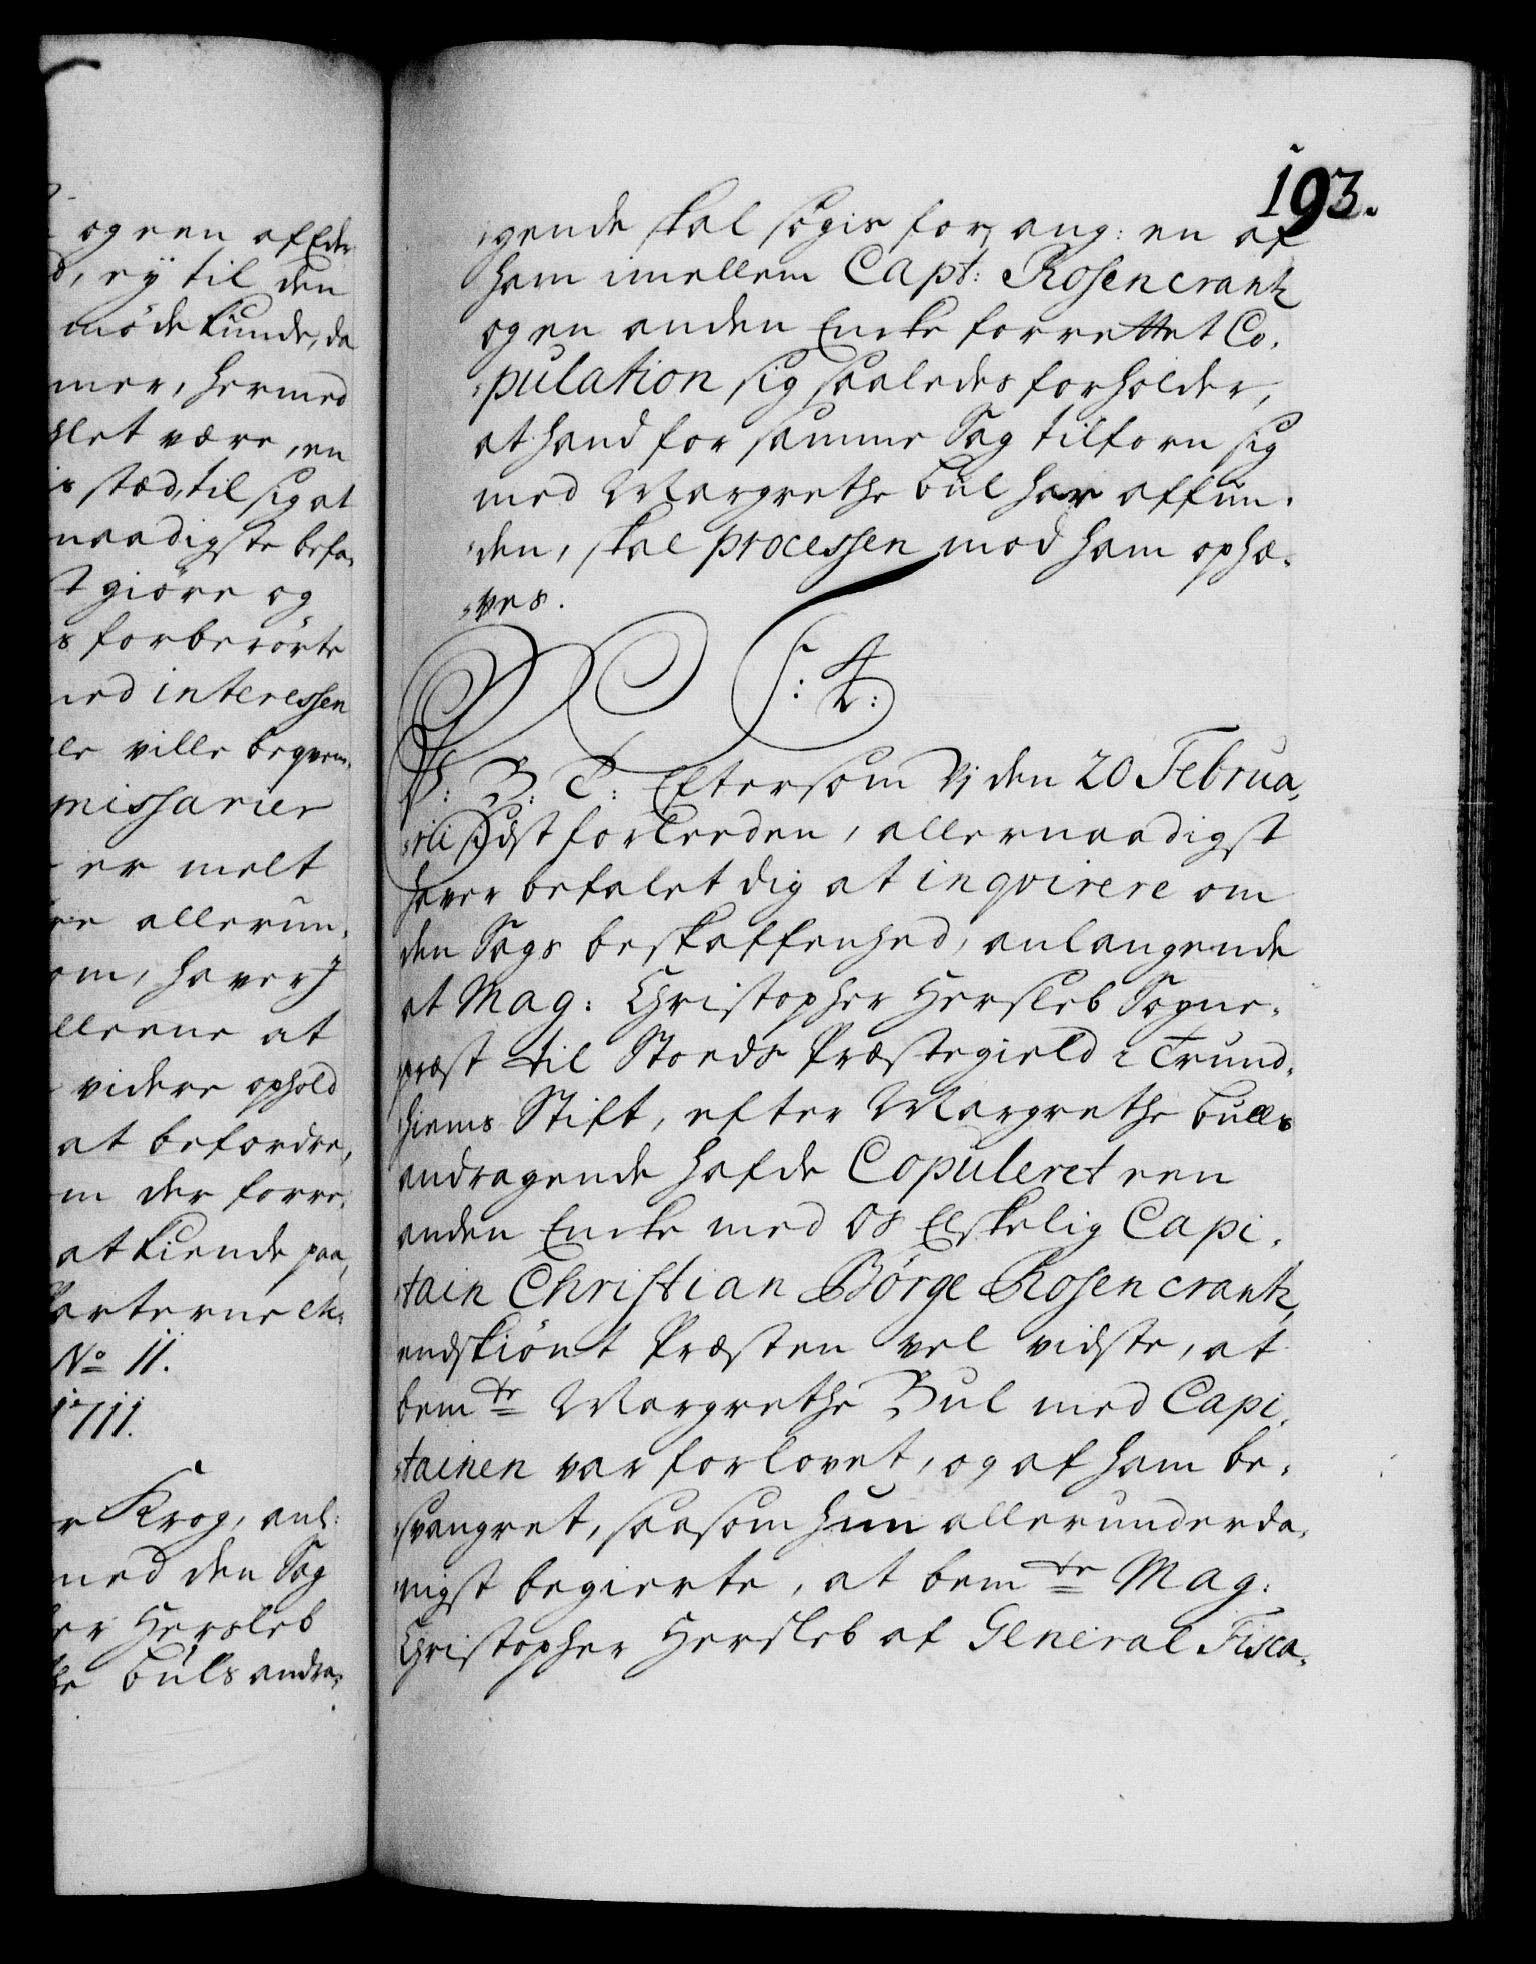 og een af Eder
, ey til den
møde kunde, da
mer, hermed
let være, en
s stæd, til sig at
naadigste befa¬
t giöre og
s forberörte
med interessen
le ville beqvem¬
missarier
er melt
re allerun¬
om, haver J
lleene at
videre ophold
at befordre,
m der forre¬
at kiende paa,
Parterne etc:
No 11.
1711.
r Krog, anl:
med den Sag
er Hersleb
he Buls andra¬
193.
gende skal søgis for, ang: en af
ham imellem Capt: Rosencrantz
og en anden Encke forrettet Co¬
pulation sig saaledes forholder,
at hand for samme Sag tilforn sig
med Margrethe Bul har affun¬
den, skal processen mod ham ophæ¬
ves.
F: 4:
V: G: T: Eftersom Vj den 20 Februa¬
rii sidst forleeden, allernaadigst
haver befalet dig at inqvirere om
den Sags beskaffenhed, anlangende
at Mag: Christopher Hersleb Sogne¬
præst til Stoeds Præstegield i Trund¬
hiems Stift, efter Margrethe Bulls
andragende hafde Copuleret een
anden Encke med Os Elskelig Capi¬
tain Christian Børge Rosencrantz,
endskiönt Præsten vel vidste, at
bemte Margrethe Bul med Capi¬
tainen var forlovet, og af ham be¬
svangret, saasom hun allerunderda¬
nigst begierte, at bemte Mag:
Christopher Hersleb af General Fisca¬